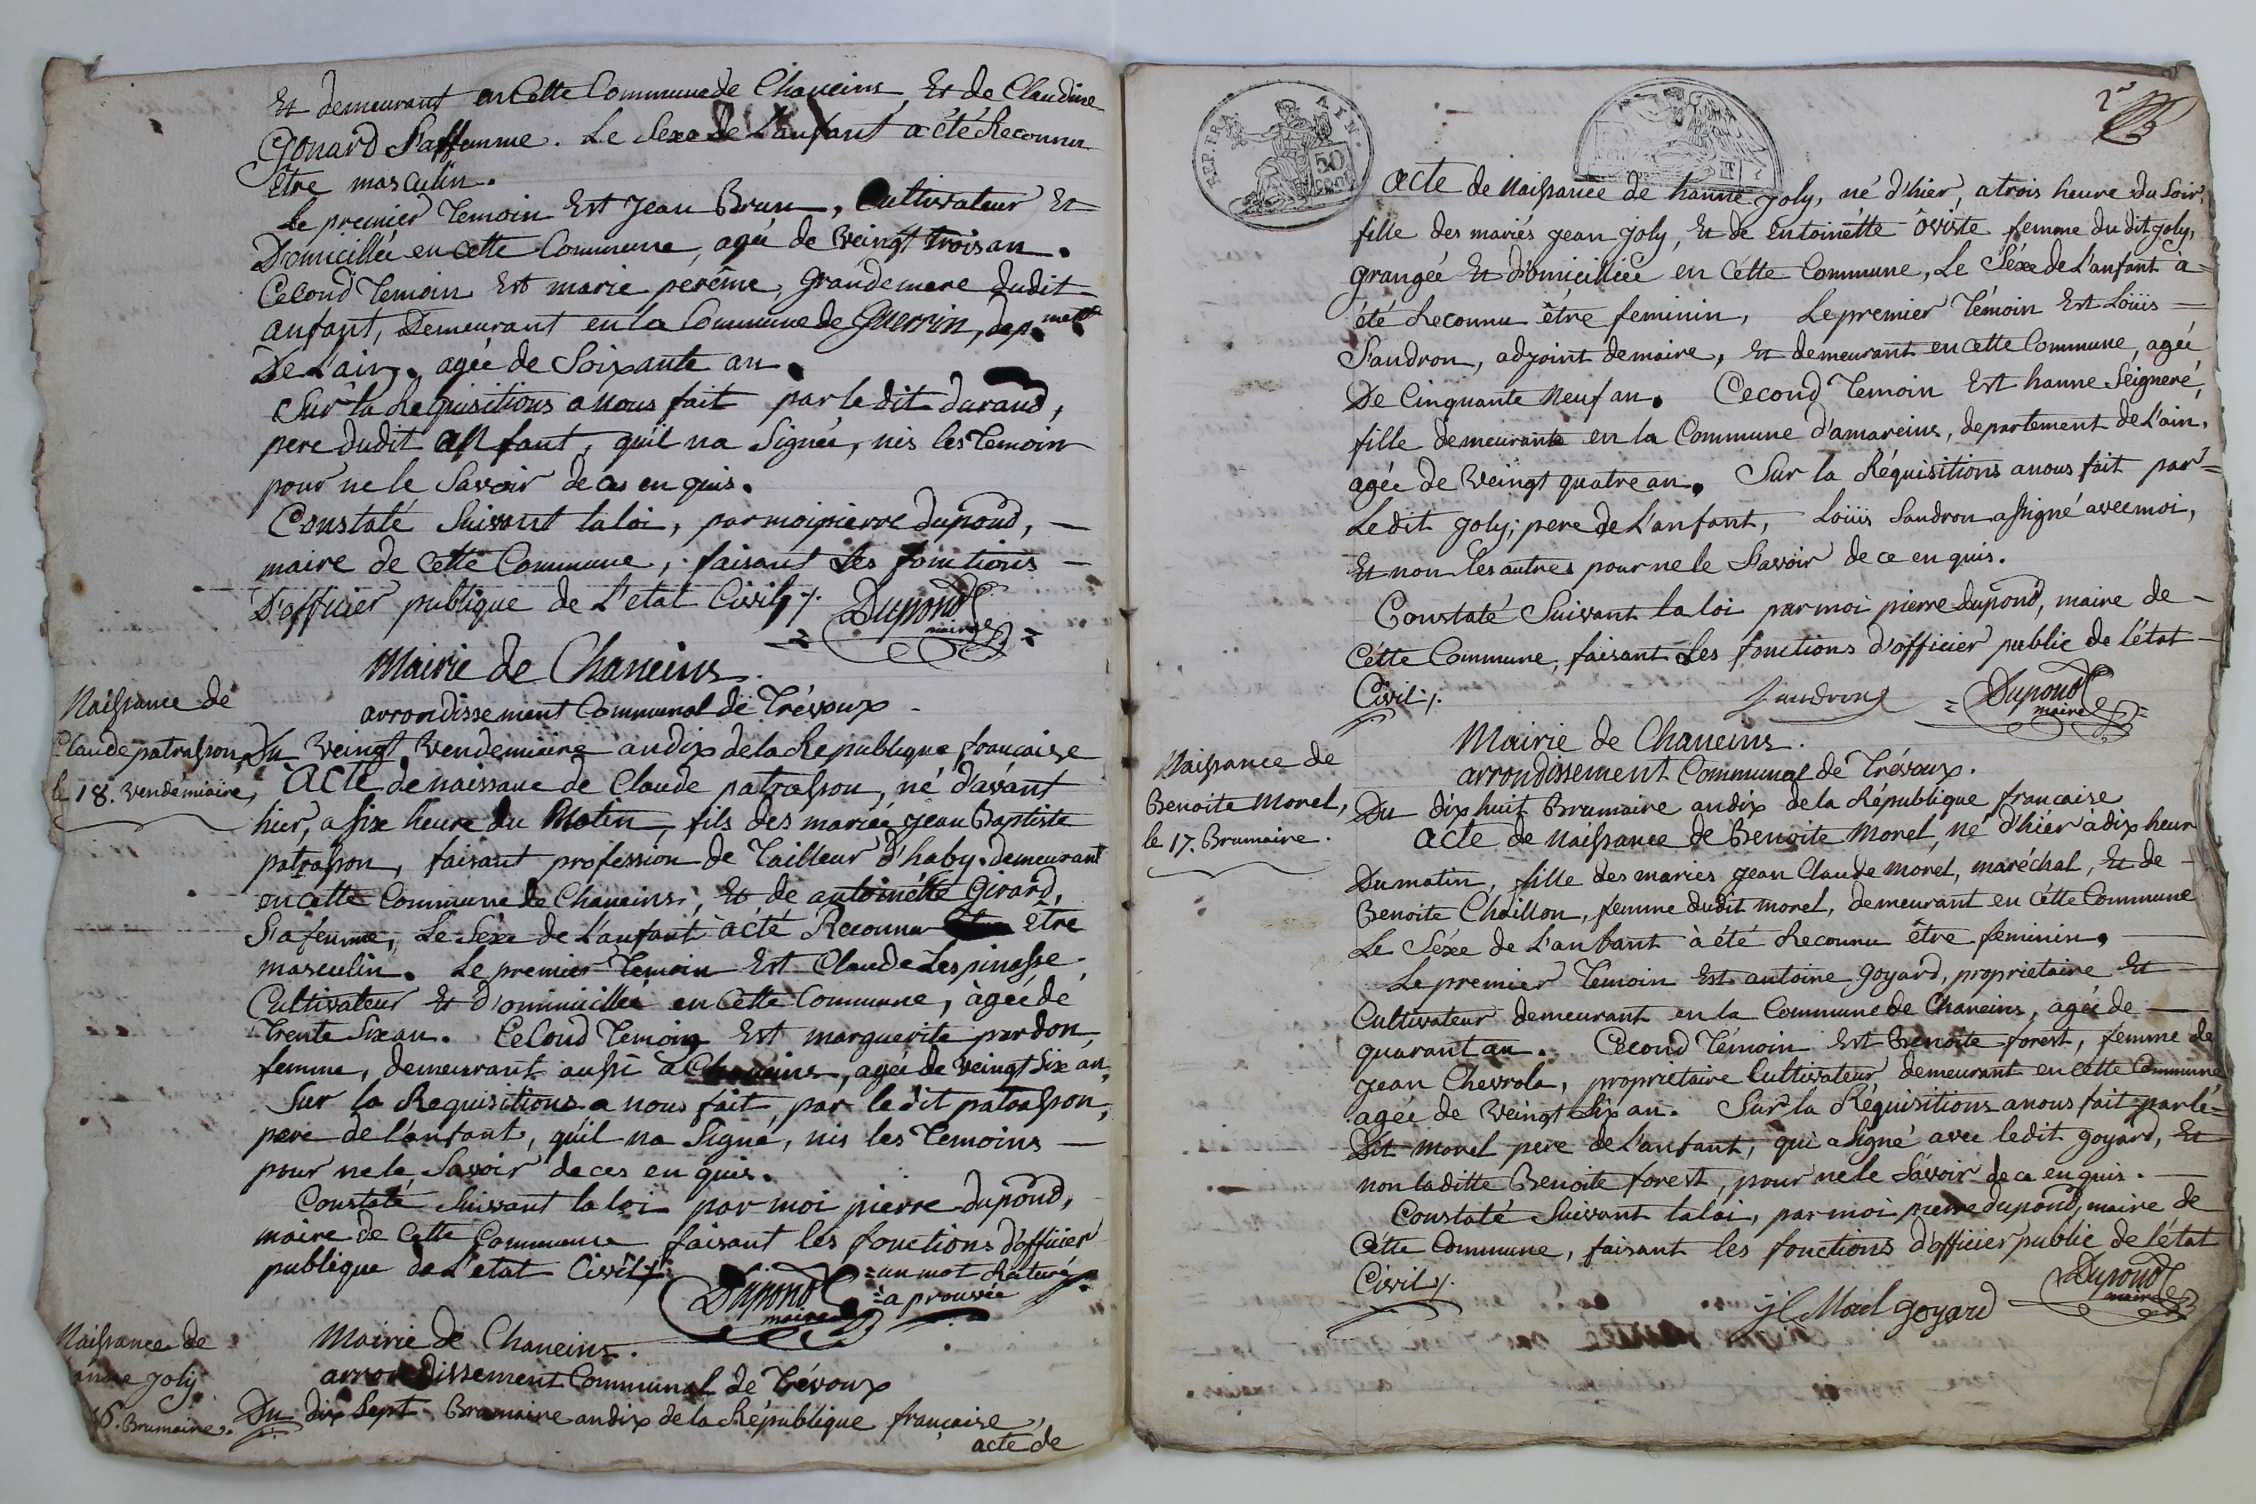 Et demeurant en Cette Commune de Chaneins, Et de Claudine
Gonard Saffemme. Le Sexe de L'anfant a été Reconnu
être masculin.
Le premier Temoin Est Jean Brun, Cultivateur Et
Domicillée en cette Commune, agée de Veingt trois an.
Cecond Temoin Est marie peréme, grandemere dudit
anfant, Demeurant en la Commune de Guerrin, dep.ment
De L'ain, agée de Soixante an.
Sur la Requisitions a nous fait par le dit durand,
pere dudit anfant, qu'il na Signée, nis les Temoin
pour ne le Savoir de ces en quis.
Constaté Suivant la loi, par moi pierre dupond,
maire de Cette Commune, faisant Les fonctions
D'officier publique de L'etat Civil ./.
Dupond
maire
Mairie de Chaneins.
arrondissement Communal de Trévoux
Naissance de
Claude patrasson,
le 18. Vendémiaire,
Du Veingt Vendemiaire an dix de la Republique française
Acte de naissance de Claude patrasson, né d'avant
hier, a six heure du Matin, fils des mariée jean Baptiste
patrasson, faisant profession de Tailleur d'haby. demeurant
en cette Commune de Chaneins, Et de antoinétte Girard,
Safemme, Le Séxe de L'anfant à été Reconnu être
masculin. Le premier Temoin Est Claude Lespinasse
Cultivateur Et D'ommicillée en Cette Commune, àgée de
Trente Six an. Cecond Temoin Est marguerite pardon
femme, demeurant aussi à Chaneins, agée de Veingt Six an,
Sur la Requisitions a nous fait, par le dit patrasson,
pere de l'anfant, qu'il na Signé, nis les Temoins
pour ne le Savoir de ces en quis.
Constaté Suivant la loi par moi pierre dupond,
maire de Cette Commune faisant les fonctions d'officier
publique de L'etat Civil ./.
=un mot Raturé
=a prouvée
Dupond
maire
Naissance de
anne joly
16. Brumaire.
Mairie de Chaneins.
arrondissement Communal de Trévoux
Du dix Sept Brumaire an dix de la République française,
acte de
2e
REP. FRA. AIN.
50 CENT.
acte de Naissance de hanne joly, né d'hier, a trois heure du Soir,
fille des mariés jean joly, Et de Entoinétte Oviste femme du dit joly,
grangée Et D'omicilliée en cétte Commune, Le Séxe de L'anfant à
été Reconnu être feminin, Le premier Témoin Est Loüis
Sandron, adjoint de maire, Et demeurant en cette Commune, agée
De Cinquante Neuf an. Cecond Temoin Est hanne Seigneré,
fille demeurante en la Commune d'amareins, departement de L'ain,
agée de Veingt quatre an. Sur la Réquisitions a nous fait par
Ledit joly; pere de L'anfant, Loüis Sandron assigné avec moi,
Et non les autres pour ne le Savoir de ce en quis.
Constaté Suivant la loi par moi pierre dupond, maire de
Cétte Commune, faisant Les fonctions d'officier public de l'état
Civil ./.
Sandron
Dupond
maire
Mairie de Chaneins.
arrondissement Communal de Trévoux.
Naissance de
Benoite Morel,
le 17. Brumaire.
Du dix huit Brumaire an dix de la République française
acte de Naissance de Benoite Morel, né d'hiér à dix heur
Du matin, fille des mariés jean Claude Morel, maréchal, Et de
Benoite Chaillon, femme dudit morel, demeurant en cétte Commune
Le Séxe de L'anfant à été Reconnu être feminin.
Le premier Temoin Est antoine goyard, proprietaire Et
Cultivateur demeurant en la Commune de Chaneins, agée de
quarant an. Cecond Témoin Est Benoite forest, femme de
jean Chevrola, proprietaire Cultivateur demeurant en cette Commune
agée de Veingt Six an. Sur la Réquisitions a nous fait par le
Dit morel pere de L'anfant, qui a Signé avec ledit goyard, Et
non laditte Benoite forest, pour ne le Savoir de ce en quis.
Constaté Suivant la loi, par moi pierre dupond, maire de
Cétte Commune, faisant les fonctions d'officier public de l'état
Civil ./.
jC Morel goyard
Dupond
maire